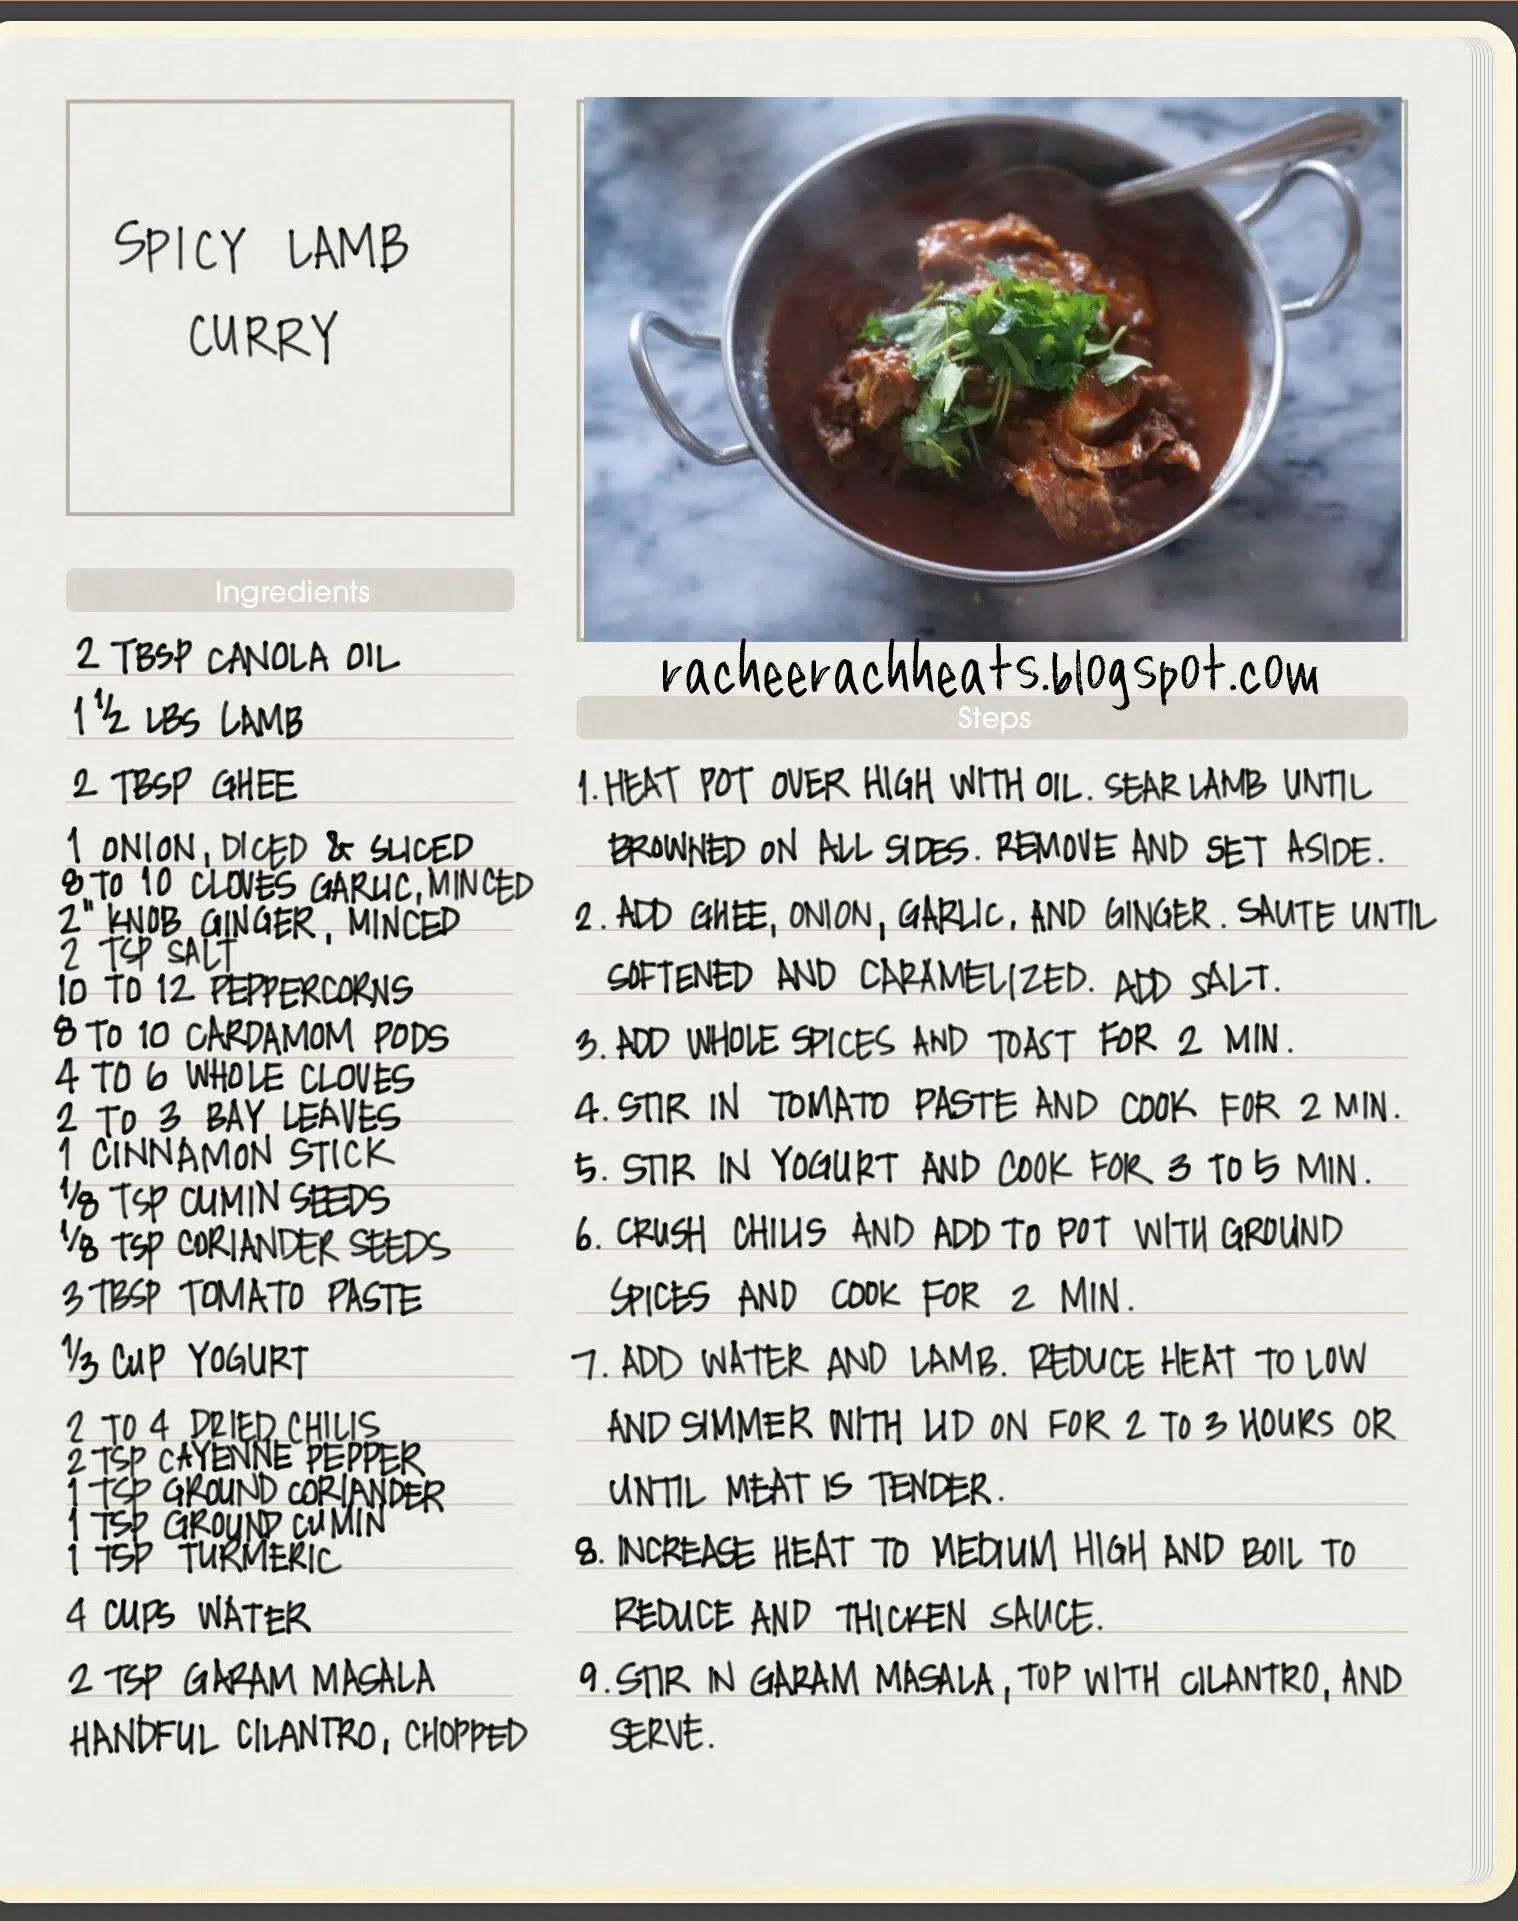 SPICY LAMB
CURRY
Ingredients
2 TBSP CANOLA OIL
1 1/2 LBS LAMB
2 TBSP GHEE
1 ONION, DICED & SLICED
8 TO 10 CLOVES GARLIC, MINCED
2" KNOB GINGER, MINCED
2 TSP SALT
10 TO 12 PEPPERCORNS
8 TO 10 CARDAMOM PODS
4 TO 6 WHOLE CLOVES
2 TO 3 BAY LEAVES
1 CINNAMON STICK
1/8 TSP CUMIN SEEDS
1/8 TSP CORIANDER SEEDS
3 TBSP TOMATO PASTE
1/3 CUP YOGURT
2 TO 4 DRIED CHILIS
2 TSP CAYENNE PEPPER
1 TSP GROUND CORIANDER
1 TSP GROUND CUMIN
1 TSP TURMERIC
4 CUPS WATER
2 TSP GARAM MASALA
HANDFUL CILANTRO, CHOPPED
racheerachheats.blogspot.com
Steps
1. HEAT POT OVER HIGH WITH OIL. SEAR LAMB UNTIL
BROWNED ON ALL SIDES. REMOVE AND SET ASIDE.
2. ADD GHEE, ONION, GARLIC, AND GINGER. SAUTE UNTIL
SOFTENED AND CARAMELIZED. ADD SALT.
3. ADD WHOLE SPICES AND TOAST FOR 2 MIN.
4. STIR IN TOMATO PASTE AND COOK FOR 2 MIN.
5. STIR IN YOGURT AND COOK FOR 3 TO 5 MIN.
6. CRUSH CHILIS AND ADD TO POT WITH GROUND
SPICES AND COOK FOR 2 MIN.
7. ADD WATER AND LAMB. REDUCE HEAT TO LOW
AND SIMMER WITH LID ON FOR 2 TO 3 HOURS OR
UNTIL MEAT IS TENDER.
8. INCREASE HEAT TO MEDIUM HIGH AND BOIL TO
REDUCE AND THICKEN SAUCE.
9. STIR IN GARAM MASALA, TOP WITH CILANTRO, AND
SERVE.